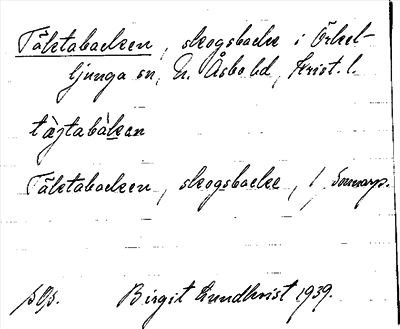 Täktabacken, skogsbacke i Örkel-
ljunga sn, N. Åsbo hd, Krist. l.
tàjtabàkan
Täktabacken, skogsbacke, / Sonnarp.
Birgit Lundkvist 1939.